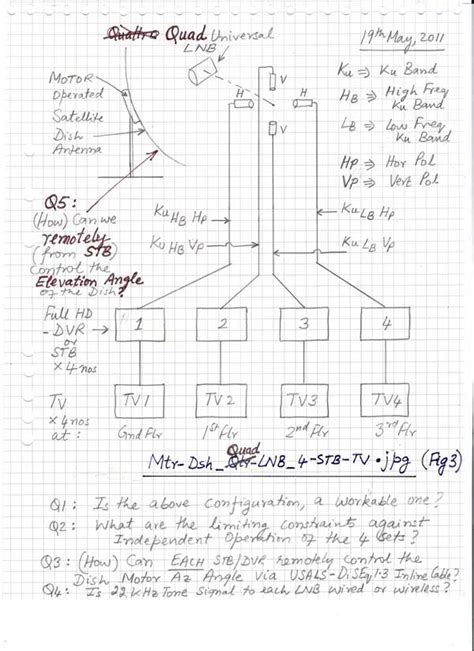 Quattro Quad Universal
LNB
19th May, 2011
Ku ⇒ Ku Band
HB ⇒ High Freq
Ku Band
LB ⇒ Low Freq
Ku Band
Hp ⇒ Hor Pol
Vp ⇒ Vert Pol
MOTOR
Operated
Satellite
Dish
Antenna
V
H
H
V
Q5:
(How) Can we
remotely
(from STB)
control the
Elevation Angle
of the Dish?
Ku HB Hp
Ku HB Vp
Ku LB Hp
Ku LB Vp
Full HD
-DVR →
or
STB
×4 nos
1
2
3
4
TV
×4 nos
at:
TV1
TV2
TV3
TV4
Gnd Flr
1st Flr
2nd Flr
3rd Flr
Mtr-Dsh_Qtr Quad-LNB_4-STB-TV.jpg (Fig 3)
Q1: Is the above configuration, a workable one?
Q2: What are the limiting constraints against
Independent Operation of the 4 Sets?
Q3: (How) Can EACH STB/DVR remotely control the
Dish Motor Az Angle via USALS-DiSEqC1.3 Inline Cable?
Q4: Is 22 kHz Tone Signal to each LNB wired or wireless?